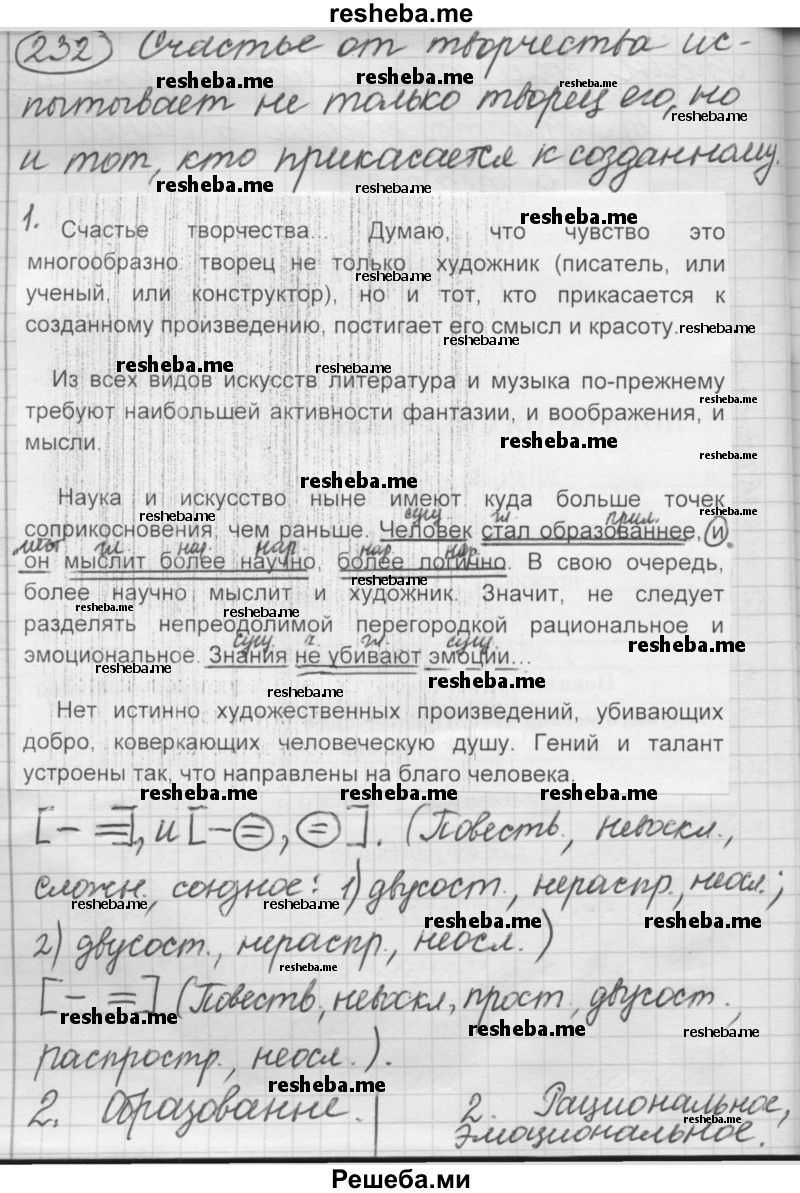 resheba.me
232 Счастье от творчества ис-
пытывает не только творец его, но
и тот, кто прикасается к созданному.
1.
Счастье творчества... Думаю, что чувство это
многообразно: творец не только художник (писатель, или
ученый, или конструктор), но и тот, кто прикасается к
созданному произведению, постигает его смысл и красоту.
Из всех видов искусств литература и музыка по-прежнему
требуют наибольшей активности фантазии, и воображения, и
мысли.
Наука и искусство ныне имеют куда больше точек
сущ. гл. прил.
соприкосновения, чем раньше. Человек стал образованнее, и
мест. гл. нар. нар. нар. нар.
он мыслит более научно, более логично. В свою очередь,
более научно мыслит и художник. Значит, не следует
разделять непреодолимой перегородкой рациональное и
сущ. ч. гл. сущ.
эмоциональное. Знания не убивают эмоции...
Нет истинно художественных произведений, убивающих
добро, коверкающих человеческую душу. Гений и талант
устроены так, что направлены на благо человека.
[- =], и [- =, =]. (Повеств., невоскл.,
сложн., союзное: 1) двусост., нераспр., неосл.;
2) двусост., нераспр., неосл.)
[- =] (Повеств, невоскл, прост., двусост.,
распростр., неосл.).
2. Образование. 2. Рациональное,
эмоциональное.
Решеба.ми